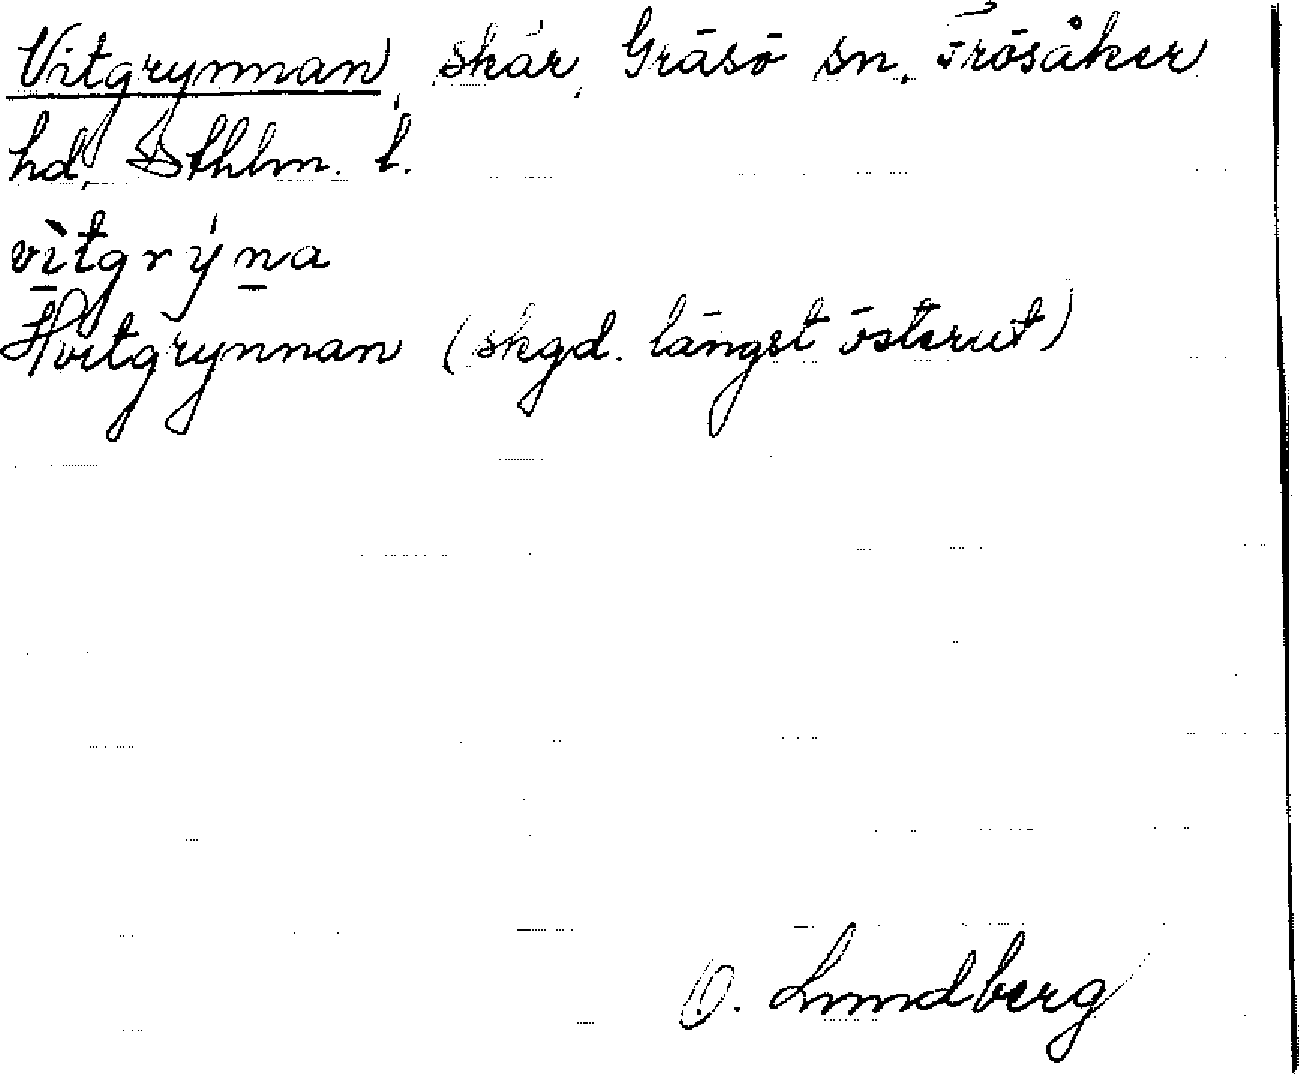 Vitgrynnan, skär, Gräsö sn, Frösåker
hd, Sthlm. l.
vìtgrýna
Hvitgrynnan (skgd. längst österut)
O. Lundberg